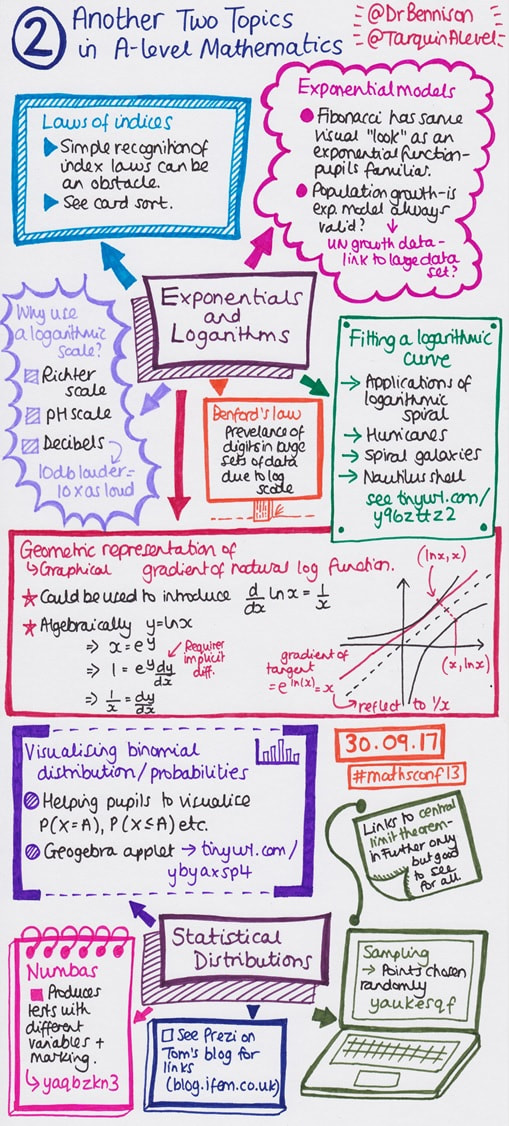 2
Another Two Topics
in A-level Mathematics
@DrBennison
@TarquinAlevel
Laws of indices
Simple recognition of
index laws can be
an obstacle.
See card sort.
Exponential models
Fibonacci has same
visual "look" as an
exponential function-
pupils familiar.
Population growth-is
exp. model always
valid?
UN growth data-
link to large data
set?
Exponentials
and
Logarithms
Why use
a logarithmic
scale?
Richter
scale
pH scale
Decibels
10db louder=
10x as loud
Benford's law
Prevelance of
digits in large
sets of data
due to log
scale
Fitting a logarithmic
curve
→ Applications of
logarithmic
spiral
→ Hurricanes
→ Spiral galaxies
→ Nautilus shell
see tinyurl.com/
y96zttz2
Geometric representation of
↳Graphical gradient of natural log function.
Could be used to introduce d/dx ln x = 1/x
Algebraically y=lnx
⇒ x=e^y
⇒ 1=e^y dy/dx
⇒ 1/x = dy/dx
Requires
implicit
diff.
(lnx,x)
(x,lnx)
gradient of
tangent
=e^ln(x)=x
→reflect to 1/x
Visualising binomial
distribution/probabilities
Helping pupils to visualise
P(X=A), P(X≤A) etc.
Geogebra applet → tinyurl.com/
ybyaxsp4
30.09.17
#mathsconf13
Links to central
limit theorem-
in Further only
but good
to see
for all.
Statistical
Distributions
Numbas
Produces
tests with
different
variables +
marking.
↳yaqbzkn3
See Prezi on
Tom's blog for
links
(blog.ifem.co.uk)
Sampling
→ Points chosen
randomly
yaukesqf